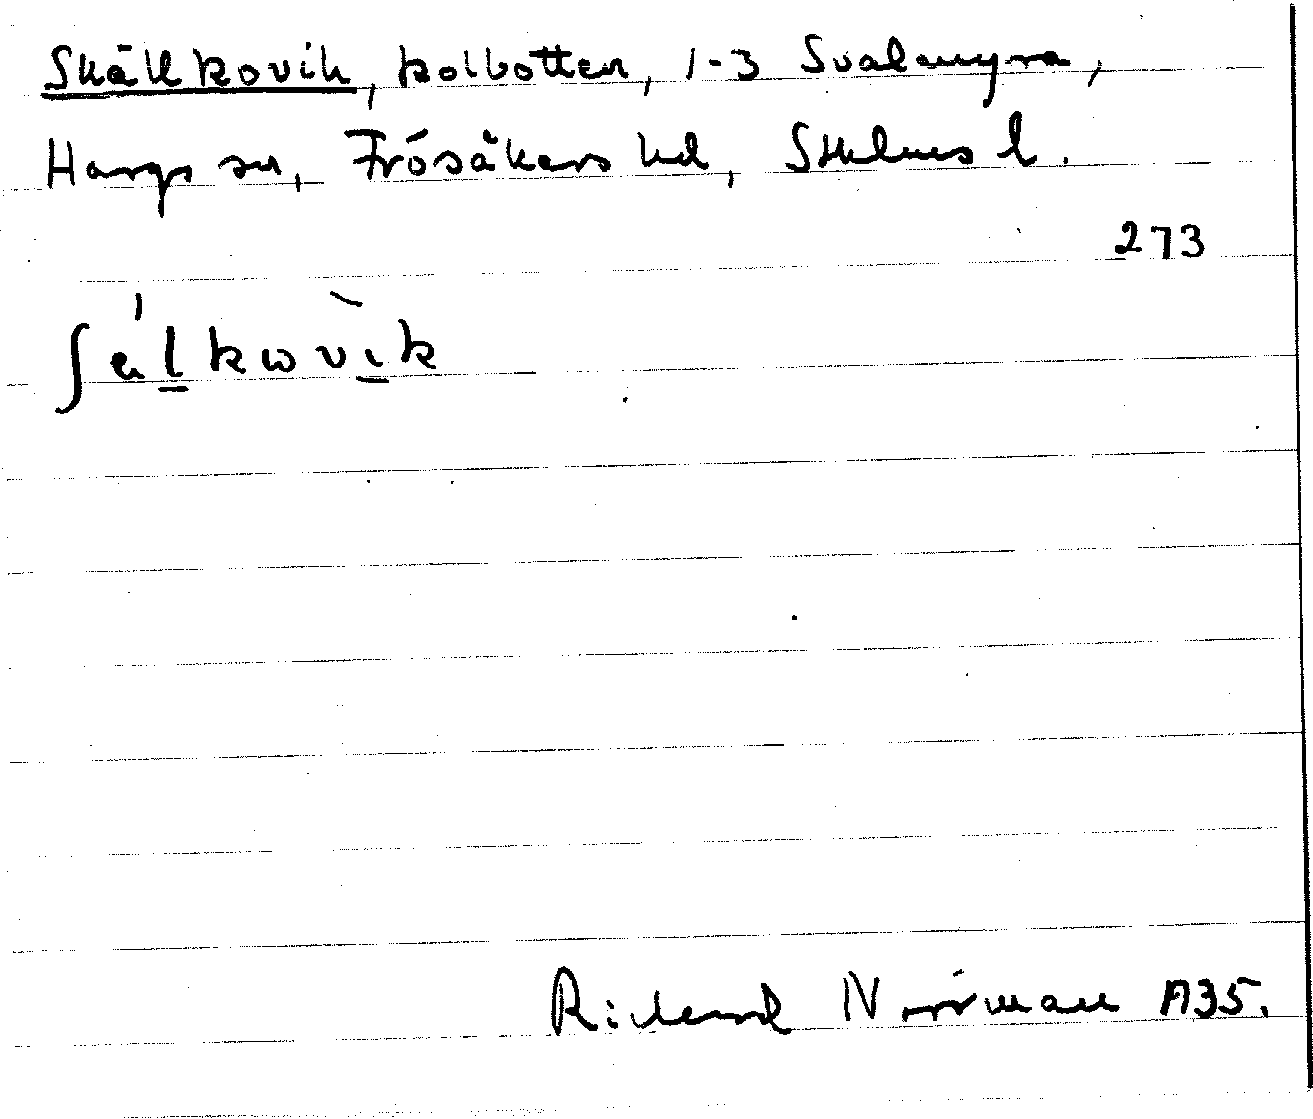 Skällkovik, kolbotten, 1-3 Svalamyra,
Hargs sn, Frösåkers hd, Sthlms l.
273
ʃälkωvik
Richard Norrman 1935.